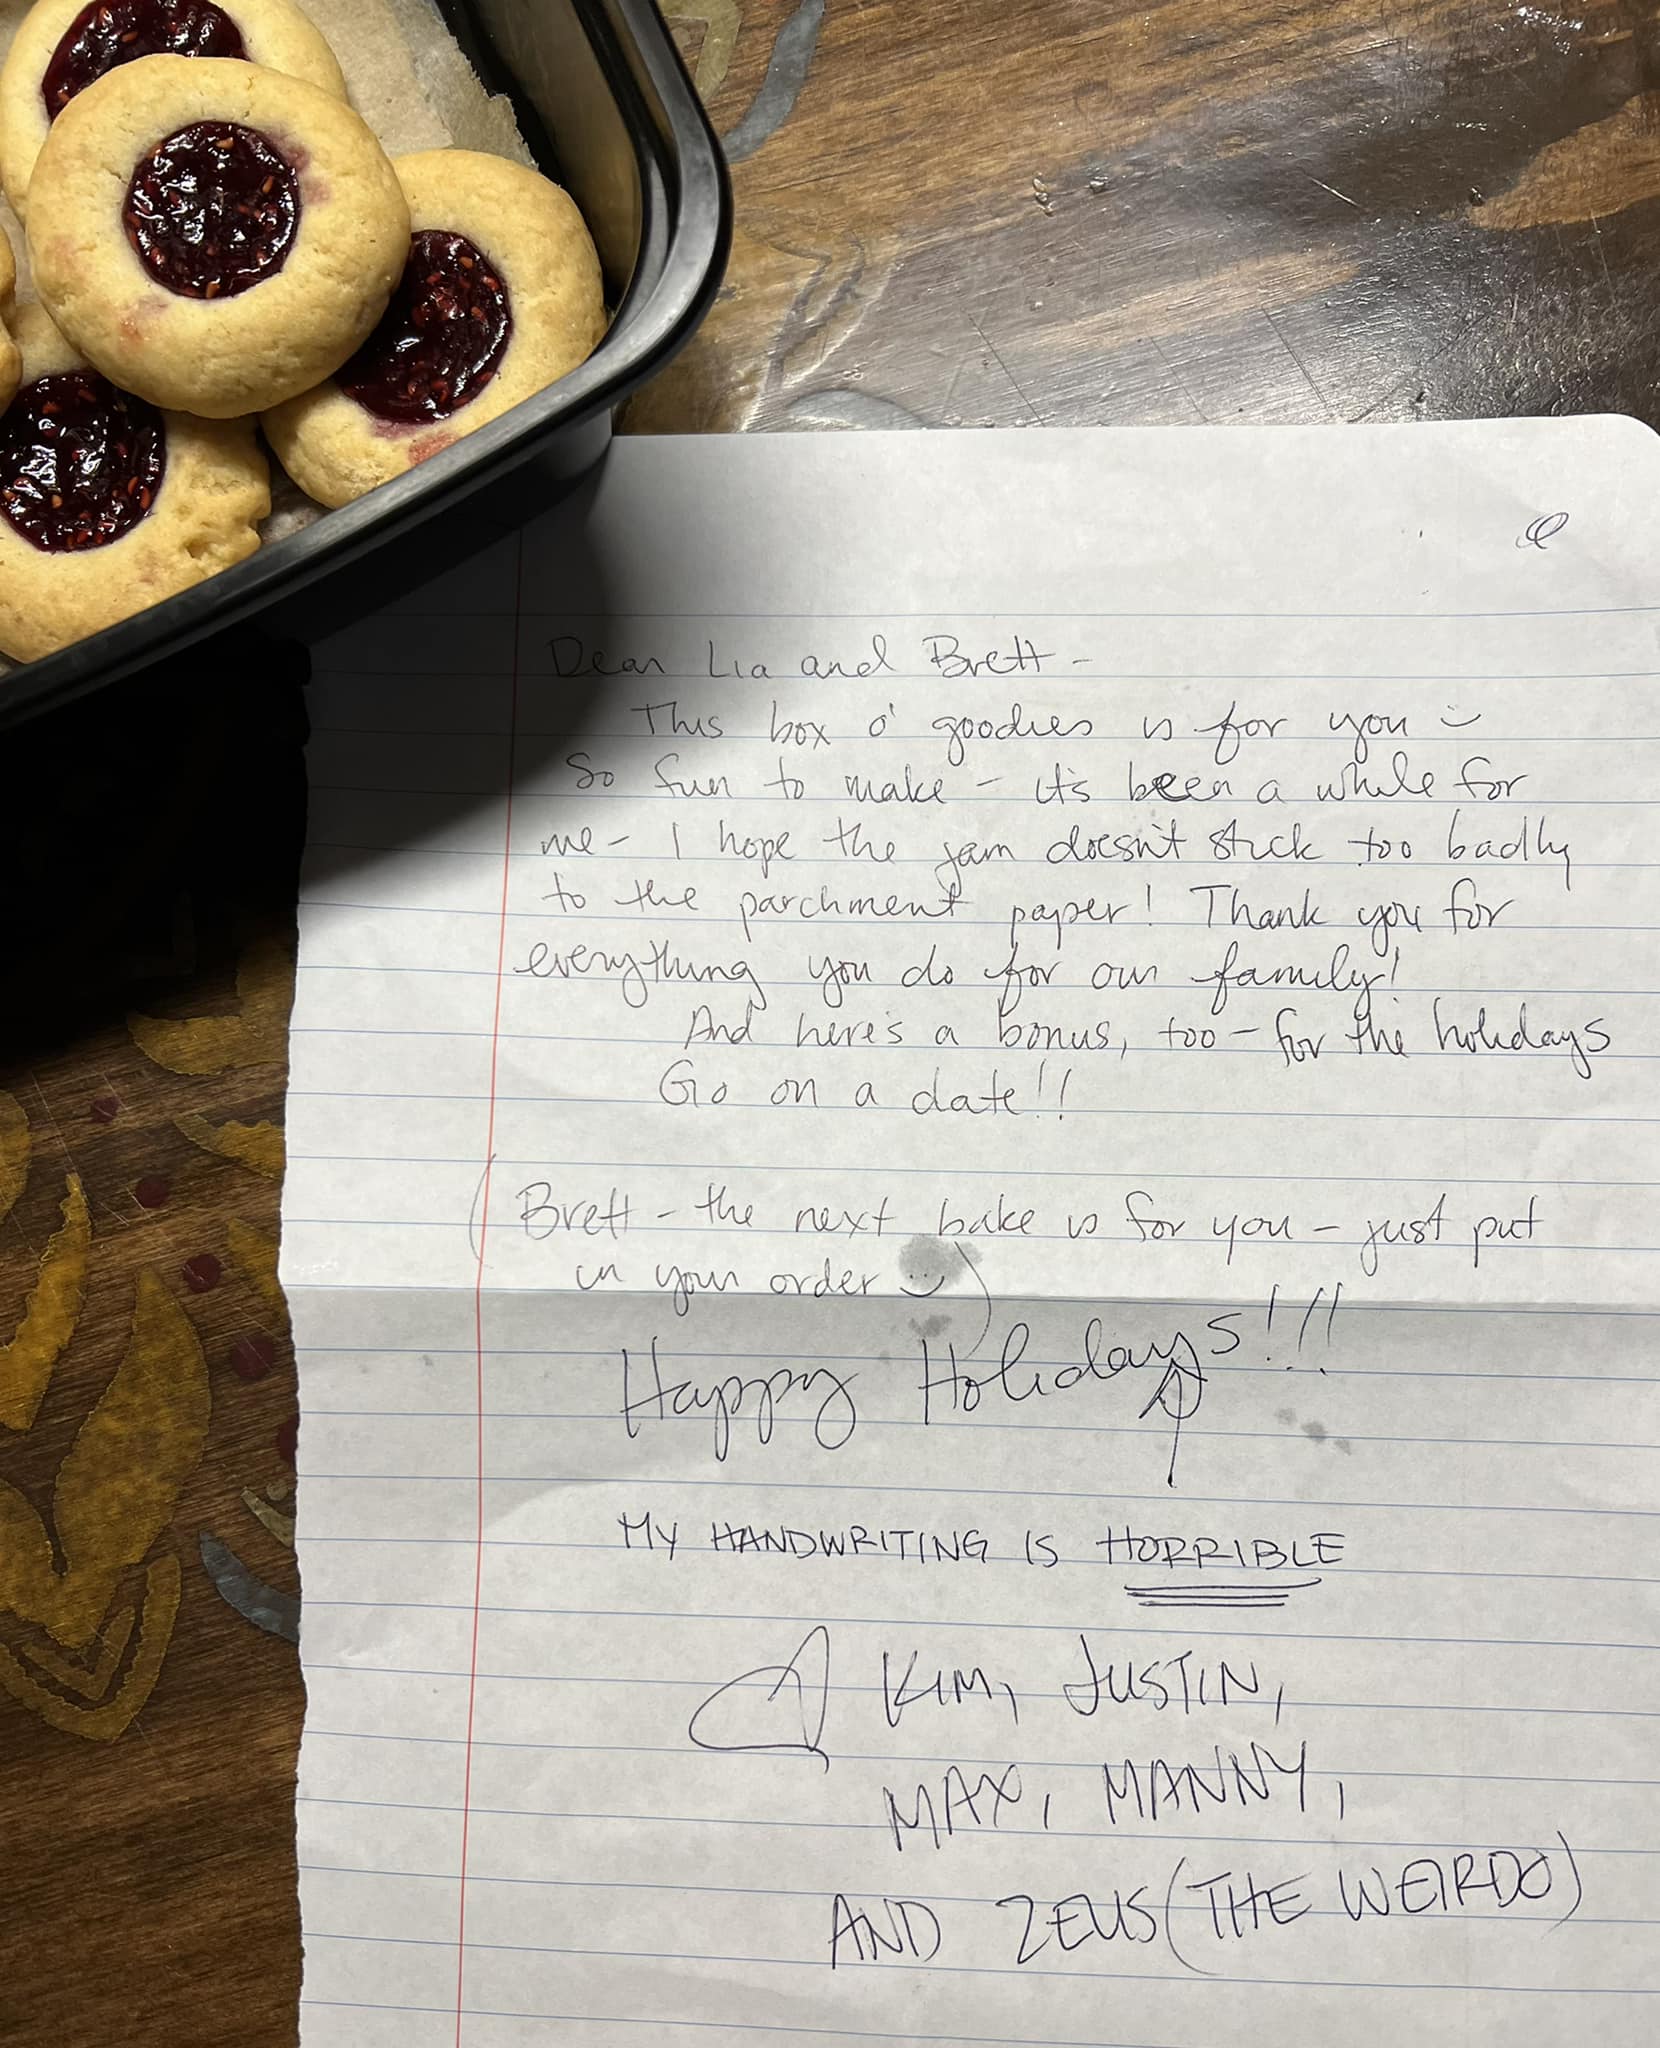 Dear Lia and Brett -
This box o' goodies is for you
So fun to make - it's been a while for
me - I hope the jam doesn't stick too badly
to the parchment paper! Thank you for
everything you do for our family!
And here's a bonus, too - for the holidays
Go on a date!!
(Brett - the next bake is for you - just put
in your order )
Happy Holidays!!!
MY HANDWRITING IS HORRIBLE
KIM, JUSTIN,
MAX, MANNY,
AND ZEUS (THE WEIRDO)